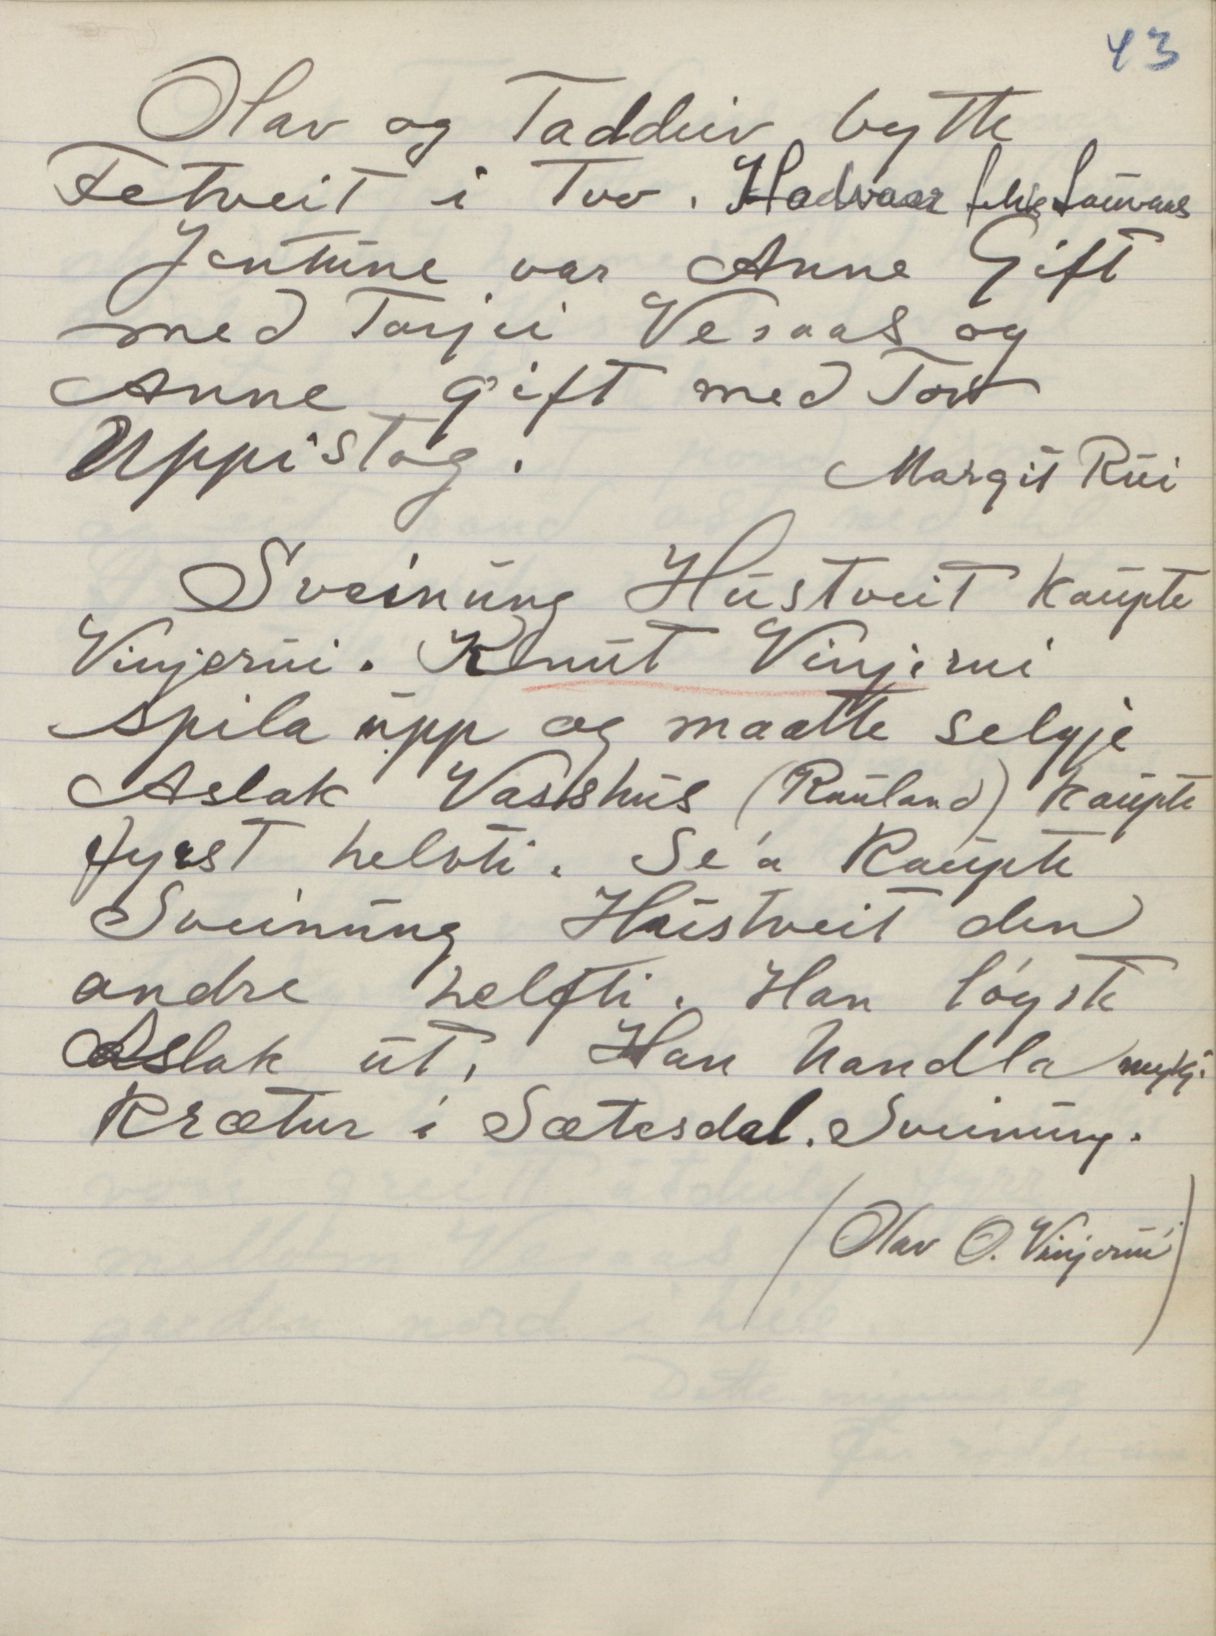 43
Olav og Taddeiv bytte
Fetveit i Tvo. Hadvaar fekk Lauvaas
Jentune var Anne Gift
med Tarjei Vesaas og
Anne gift med Tov
Uppistog.
Margit Rui
Sveinung Hustveit kaupte
Vinjerui. Knut Vinjerui
spila upp og maatte selgje
Aslak Vasshus (Rauland) kaupte
fyrst helvti. Se'a kaupte
Sveinung Hustveit den
andre helfti. Han løyste
Aslak ut. Han handla mykje
krætur i Sætesdal. Sveinung.
(Olav O. Vinjerui)